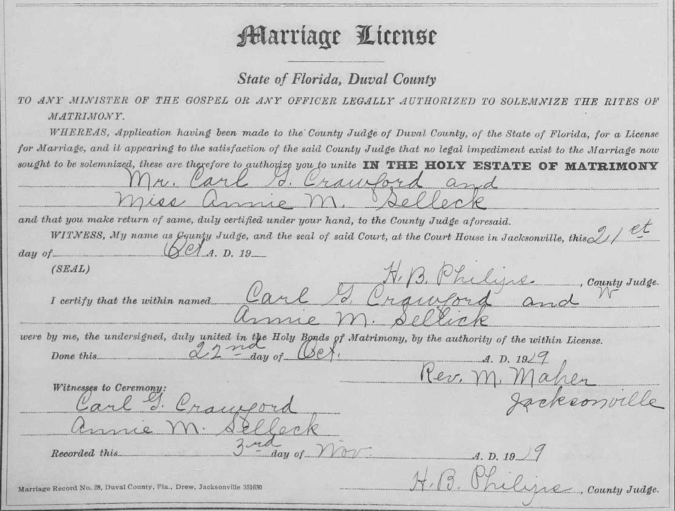 Marriage License
State of Florida, Duval County
TO ANY MINISTER OF THE GOSPEL OR ANY OFFICER LEGALLY AUTHORIZED TO SOLEMNIZE THE RITES OF
MATRIMONY.
WHEREAS, Application having been made to the County Judge of Duval County, of the State of Florida, for a License
for Marriage, and it appearing to the satisfaction of the said County Judge that no legal impediment exist to the Marriage now
sought to be solemnized, these are therefore to authorize you to unite IN THE HOLY ESTATE OF MATRIMONY
Mr. Carl G. Crawford and
Miss Annie M. Selleck
and that you make return of same, duly certified under your hand, to the County Judge aforesaid.
WITNESS, My name as County Judge, and the seal of said Court, at the Court House in Jacksonville, this 21st
day of Oct A. D. 19
(SEAL)
H. B. Philips, County Judge.
I certify that the within named Carl G. Crawford and W
Annie M. Sellick
were by me, the undersigned, duly united in the Holy Bonds of Matrimony, by the authority of the within License.
Done this 22nd day of Oct. A. D. 1919
Rev. M. Maher
Witnesses to Ceremony: Jacksonville
Carl G. Crawford
Annie M. Selleck
Recorded this 3rd day of Nov. A. D. 1919
H. B. Philips, County Judge.
Marriage Record No. 28, Duval County, Fla., Drew, Jacksonville 351630